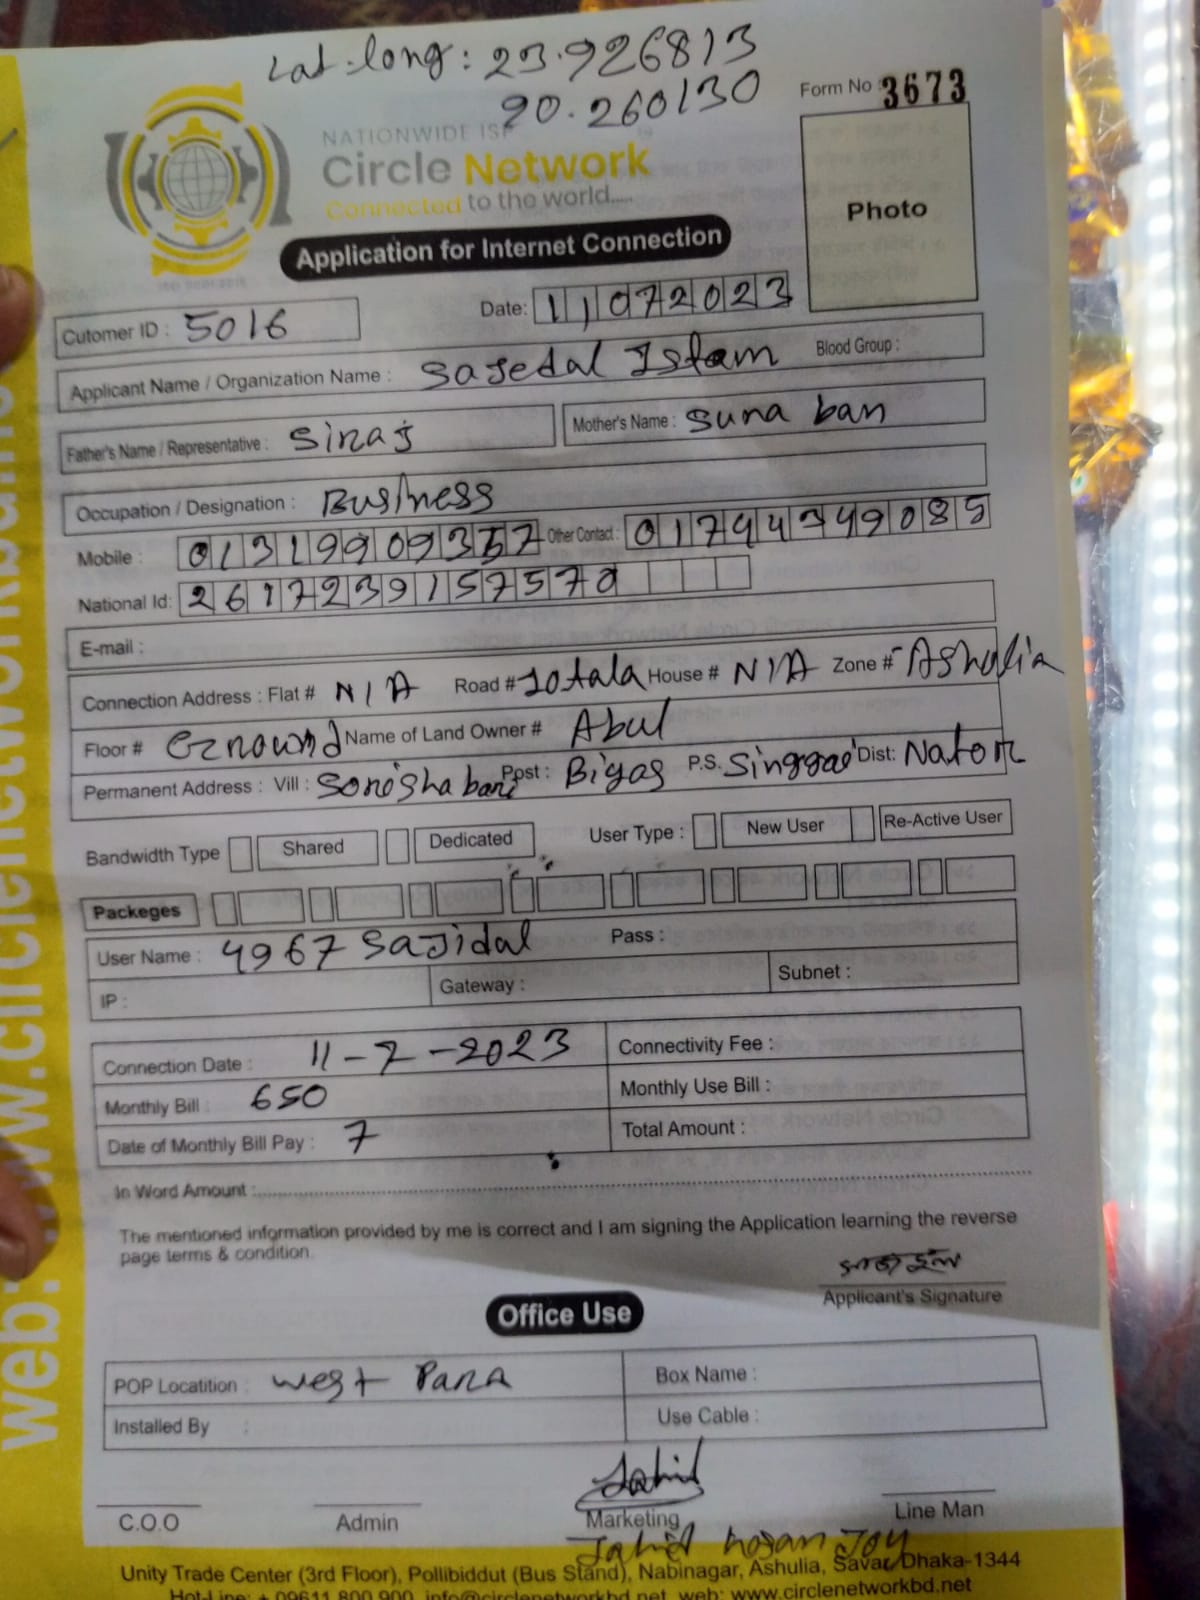 Lat-long: 23.926813
90.260130
Form No 3673
NATIONWIDE ISP
Circle Network
Connected to the world.....
Photo
Application for Internet Connection
Cutomer ID : 5016 Date: 11072023
Applicant Name / Organization Name : Sajedal Islam Blood Group :
Father's Name / Representative : Siraj Mother's Name : Suna ban
Occupation / Designation : Business
Mobile : Other Contact :
National Id:
E-mail :
Connection Address : Flat # N/A Road # Jotala House # N/A Zone # Ashulia
Floor # Ground Name of Land Owner # Abul
Permanent Address : Vill : Post : Biyas P.S. Dist: Nator
Bandwidth Type Shared Dedicated User Type : New User Re-Active User
Packeges
User Name : 4967 Sajidal Pass :
IP : Gateway : Subnet :
Connection Date : 11-7-2023 Connectivity Fee :
Monthly Bill : 650 Monthly Use Bill :
Date of Monthly Bill Pay : 7 Total Amount :
In Word Amount :
The mentioned information provided by me is correct and I am signing the Application learning the reverse
page terms & condition.
Applicant's Signature
Office Use
POP Locatition : West Para Box Name :
Installed By : Use Cable :
Jahid
C.O.O Admin Marketing Line Man
Jahid Hasan Joy
Unity Trade Center (3rd Floor), Pollibiddut (Bus Stand), Nabinagar, Ashulia, Savar, Dhaka-1344
Hot-Line: + 09611 800 900, info@circlenetworkbd.net, web: www.circlenetworkbd.net